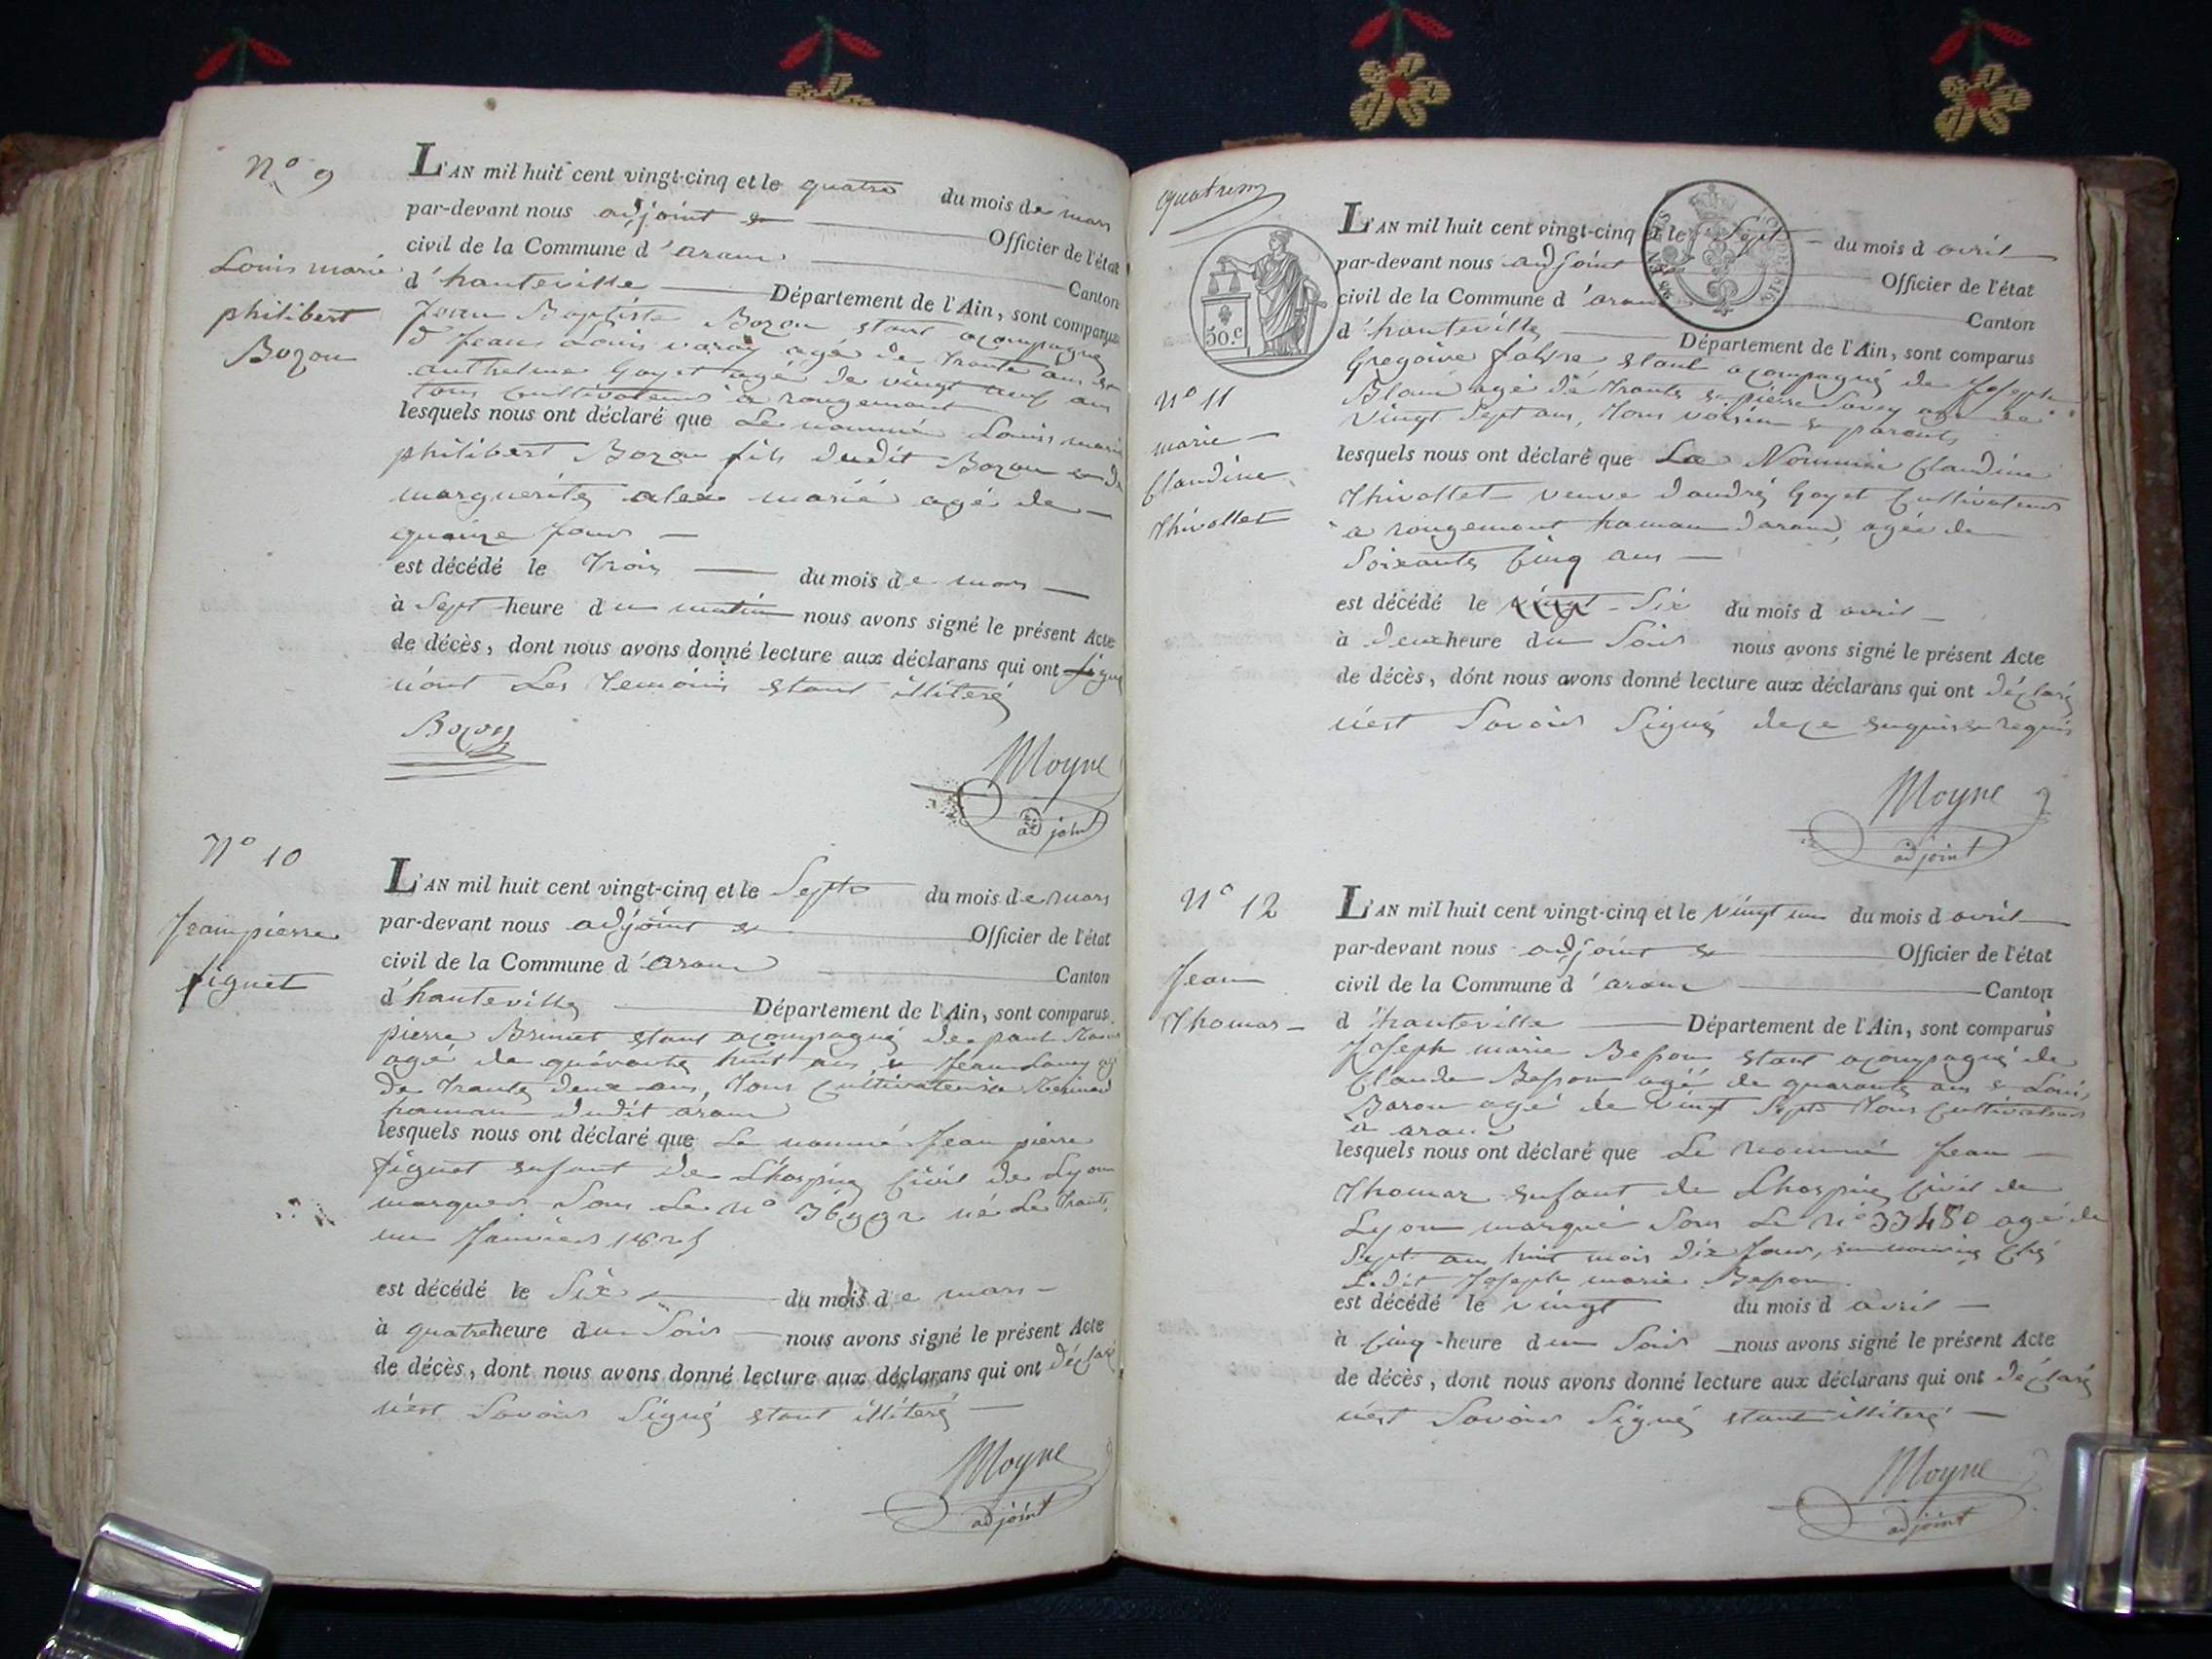 N° 9
Louis marie
philibert
Bozon
L'AN mil huit cent vingt-cinq et le quatre du mois de mars
par-devant nous adjoint Officier de l'état
civil de la Commune d'aranc Canton
d'hauteville Département de l'Ain, sont comparus
Jean Baptiste Bozon etant acompagné
d Jean Louis varay agé de trante ans et
anthelme Goyet agé de vingt neuf ans
tous cultivateurs à rougemont
lesquels nous ont déclaré que Le nommé Louis marie
philibert Bozon fils dudit Bozon et de
marguerite alex marié agé de
quinze jours
est décédé le trois du mois de mars
à Sept heure du matin nous avons signé le présent Acte
de décès, dont nous avons donné lecture aux déclarans qui ont signé
n'ont Les temoins etant illiteré
Bozon
Moyne
adjoint
N° 10
Jean pierre
figuet
L'AN mil huit cent vingt-cinq et le Sept du mois de mars
par-devant nous adjoint Officier de l'état
civil de la Commune d'aranc Canton
d'hauteville Département de l'Ain, sont comparus
pierre Brunet etant acompagné de paul
agé de quarante huit ans, et Jean Savey agé
de trante deux ans, tous cultivateur a
hamau dudit aranc
lesquels nous ont déclaré que Le nommé Jean pierre
figuet enfant de L'hospice Civil de Lyon
marque Sous Le n° 36992 né Le trante
un Janvier 1825
est décédé le Six du mois de mars
à quatre heure du Soir nous avons signé le présent Acte
de décès, dont nous avons donné lecture aux déclarans qui ont déclaré
n'est Savoir Signé etant illiteré
Moyne
adjoint
quatrem
50.c
N° 11
marie
Claudine
Thivollet
L'AN mil huit cent vingt-cinq et le Sept du mois d avril
par-devant nous adjoint Officier de l'état
civil de la Commune d'aranc Canton
d'hauteville Département de l'Ain, sont comparus
Gregoire fabre, etant acompagné de Joseph
Blanc agé de trante et pierre Savey agé de
Vingt Sept ans, tous voisin et parents
lesquels nous ont déclaré que La Nommée Claudine
Thivollet veuve d'andré Goyet Cultivateur
a rougemont hamau d'aranc, agée de
Soixante Cinq ans
est décédé le vingt Six du mois d avril
à deux heure du Soir nous avons signé le présent Acte
de décès, dont nous avons donné lecture aux déclarans qui ont déclaré
n'est Savoir Signé de ce enquis et requis
Moyne
adjoint
N° 12
Jean
Thomas
L'AN mil huit cent vingt-cinq et le vingt un du mois d avril
par-devant nous adjoint Officier de l'état
civil de la Commune d'aranc Canton
d'hauteville Département de l'Ain, sont comparus
Joseph marie Besson etant acompagné de
Claude Besson agé de quarante ans et Louis
Baron agé de vingt Sept tous Cultivateurs
a aranc
lesquels nous ont déclaré que Le nommé Jean
Thomas enfant de L'hospice Civil de
Lyon marqué Sous Le n° 33480 agé de
Sept ans huit mois dix Jours, en nourice chez
Ledit Joseph marie Besson
est décédé le vingt du mois d avril
à Cinq heure du Soir nous avons signé le présent Acte
de décès, dont nous avons donné lecture aux déclarans qui ont déclaré
n'est Savoir Signé etant illiteré
Moyne
adjoint